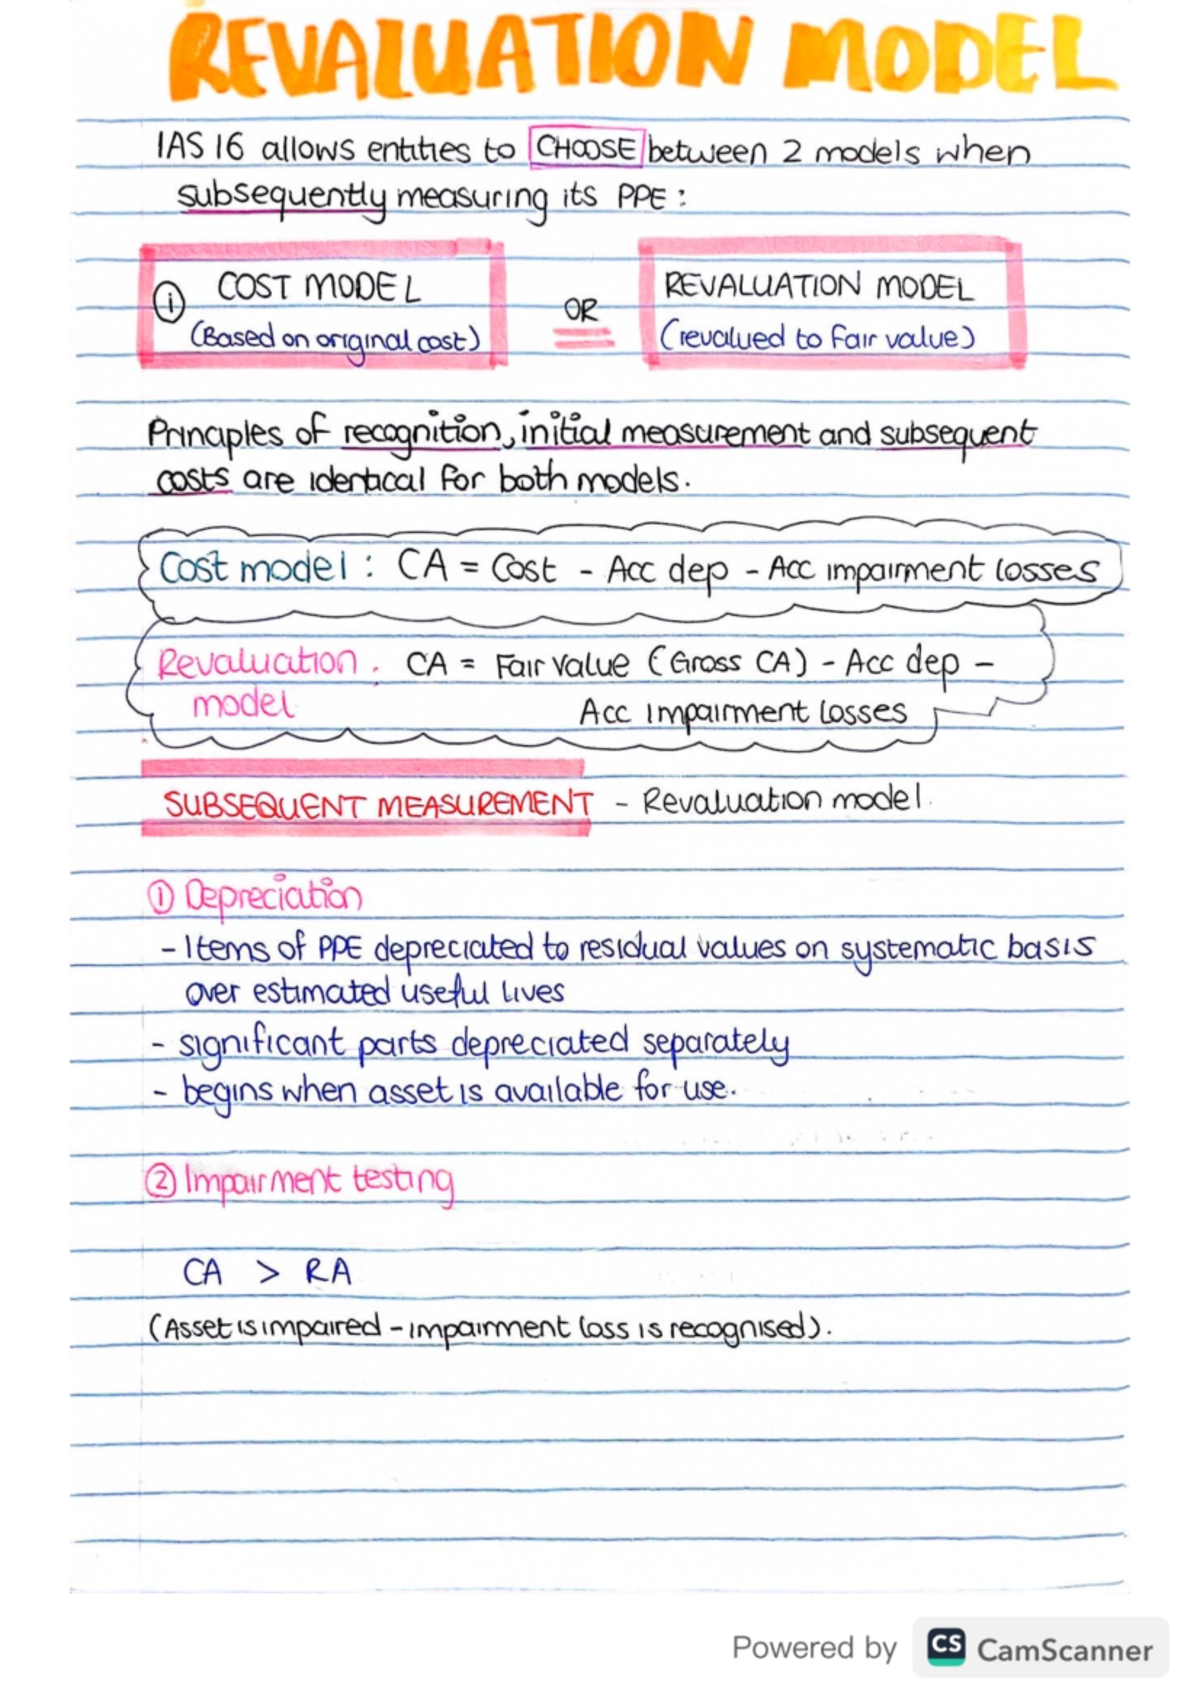 REVALUATION MODEL
IAS 16 allows entities to CHOOSE between 2 models when
subsequently measuring its PPE :
① COST MODEL
(Based on original cost)
OR
REVALUATION MODEL
(revalued to fair value)
Principles of recognition, initial measurement and subsequent
costs are identical for both models.
Cost model : CA = Cost - Acc dep - Acc impairment losses
Revaluation . CA = Fair value (Gross CA) - Acc dep -
model Acc impairment losses
SUBSEQUENT MEASUREMENT - Revaluation model.
① Depreciation
- Items of PPE depreciated to residual values on systematic basis
over estimated useful lives
- significant parts depreciated separately
- begins when asset is available for use.
② Impairment testing
CA > RA
(Asset is impaired - impairment loss is recognised).
Powered by CS CamScanner